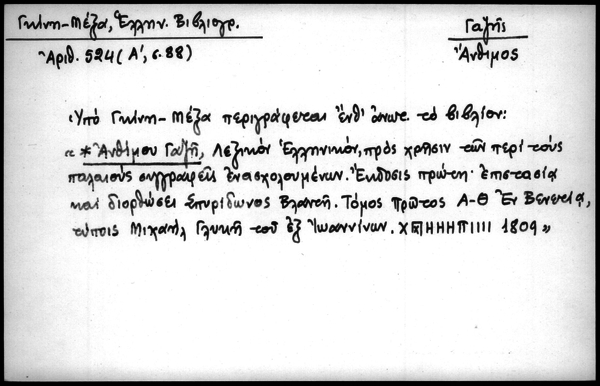 Γκίνη-Μέξα, Ἑλλην. Βιβλιογρ.
Γαζῆς
Ἀριθ. 524 (Α΄, σ. 88)
Ἄνθιμος
Ὑπό Γκίνη-Μέξα περιγράφεται ἔνθ' ἀνωτ. τό βιβλίον:
« * Ἀνθίμου Γαζῆ, Λεξικόν Ἑλληνικόν, πρός χρῆσιν τῶν περί τούς
παλαιούς συγγραφεῖς ἐνασχολουμένων. Ἔκδοσις πρώτη· ἐπιστασίᾳ
καί διορθώσει Σπυρίδωνος Βλαντῆ. Τόμος πρῶτος Α-Θ Ἐν Βενετίᾳ,
τύποις Μιχαήλ Γλυκῆ τοῦ ἐξ Ἰωαννίνων. ΗΗΗΠΙΙΙΙ 1809 »